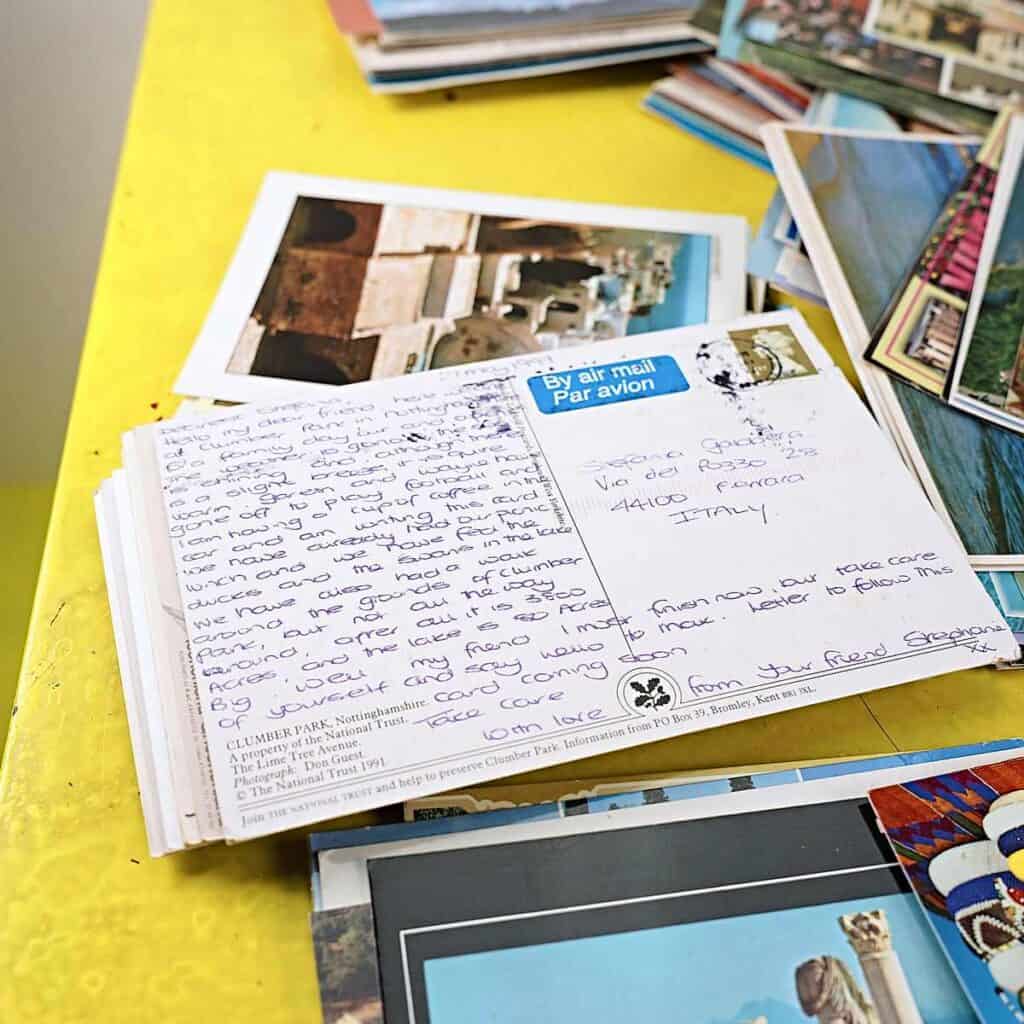 Hello my dear friend here
at Clumber Park in Nottingham
is a slight breeze, it is quire
warm. gareth and wayne have
gone off to play football and
I am having a cup of coffee in the
car and am writing this card
we have already had our picnic
lunch and we have feed the
ducks and the swans in the lake
We have also had a walk
around the grounds of clumber
park, but not all the way
around, after all it is 3800
Acres, and the lake is 80 Acres
Big. Well my friend I must
of yourself and say hello
card coming soon
Take care
with love
CLUMBER PARK, Nottinghamshire.
A property of the National Trust.
The Lime Tree Avenue.
Photograph: Don Guest.
© The National Trust 1991.
Join THE NATIONAL TRUST and help to preserve Clumber Park. Information from PO Box 39, Bromley, Kent BR1 1XL.
By air mail
Par avion
Via del Pozzo 28
44100 Ferrara
ITALY.
finish now, but take care
to mak. letter to follow this
from your friend Stephanie
xx